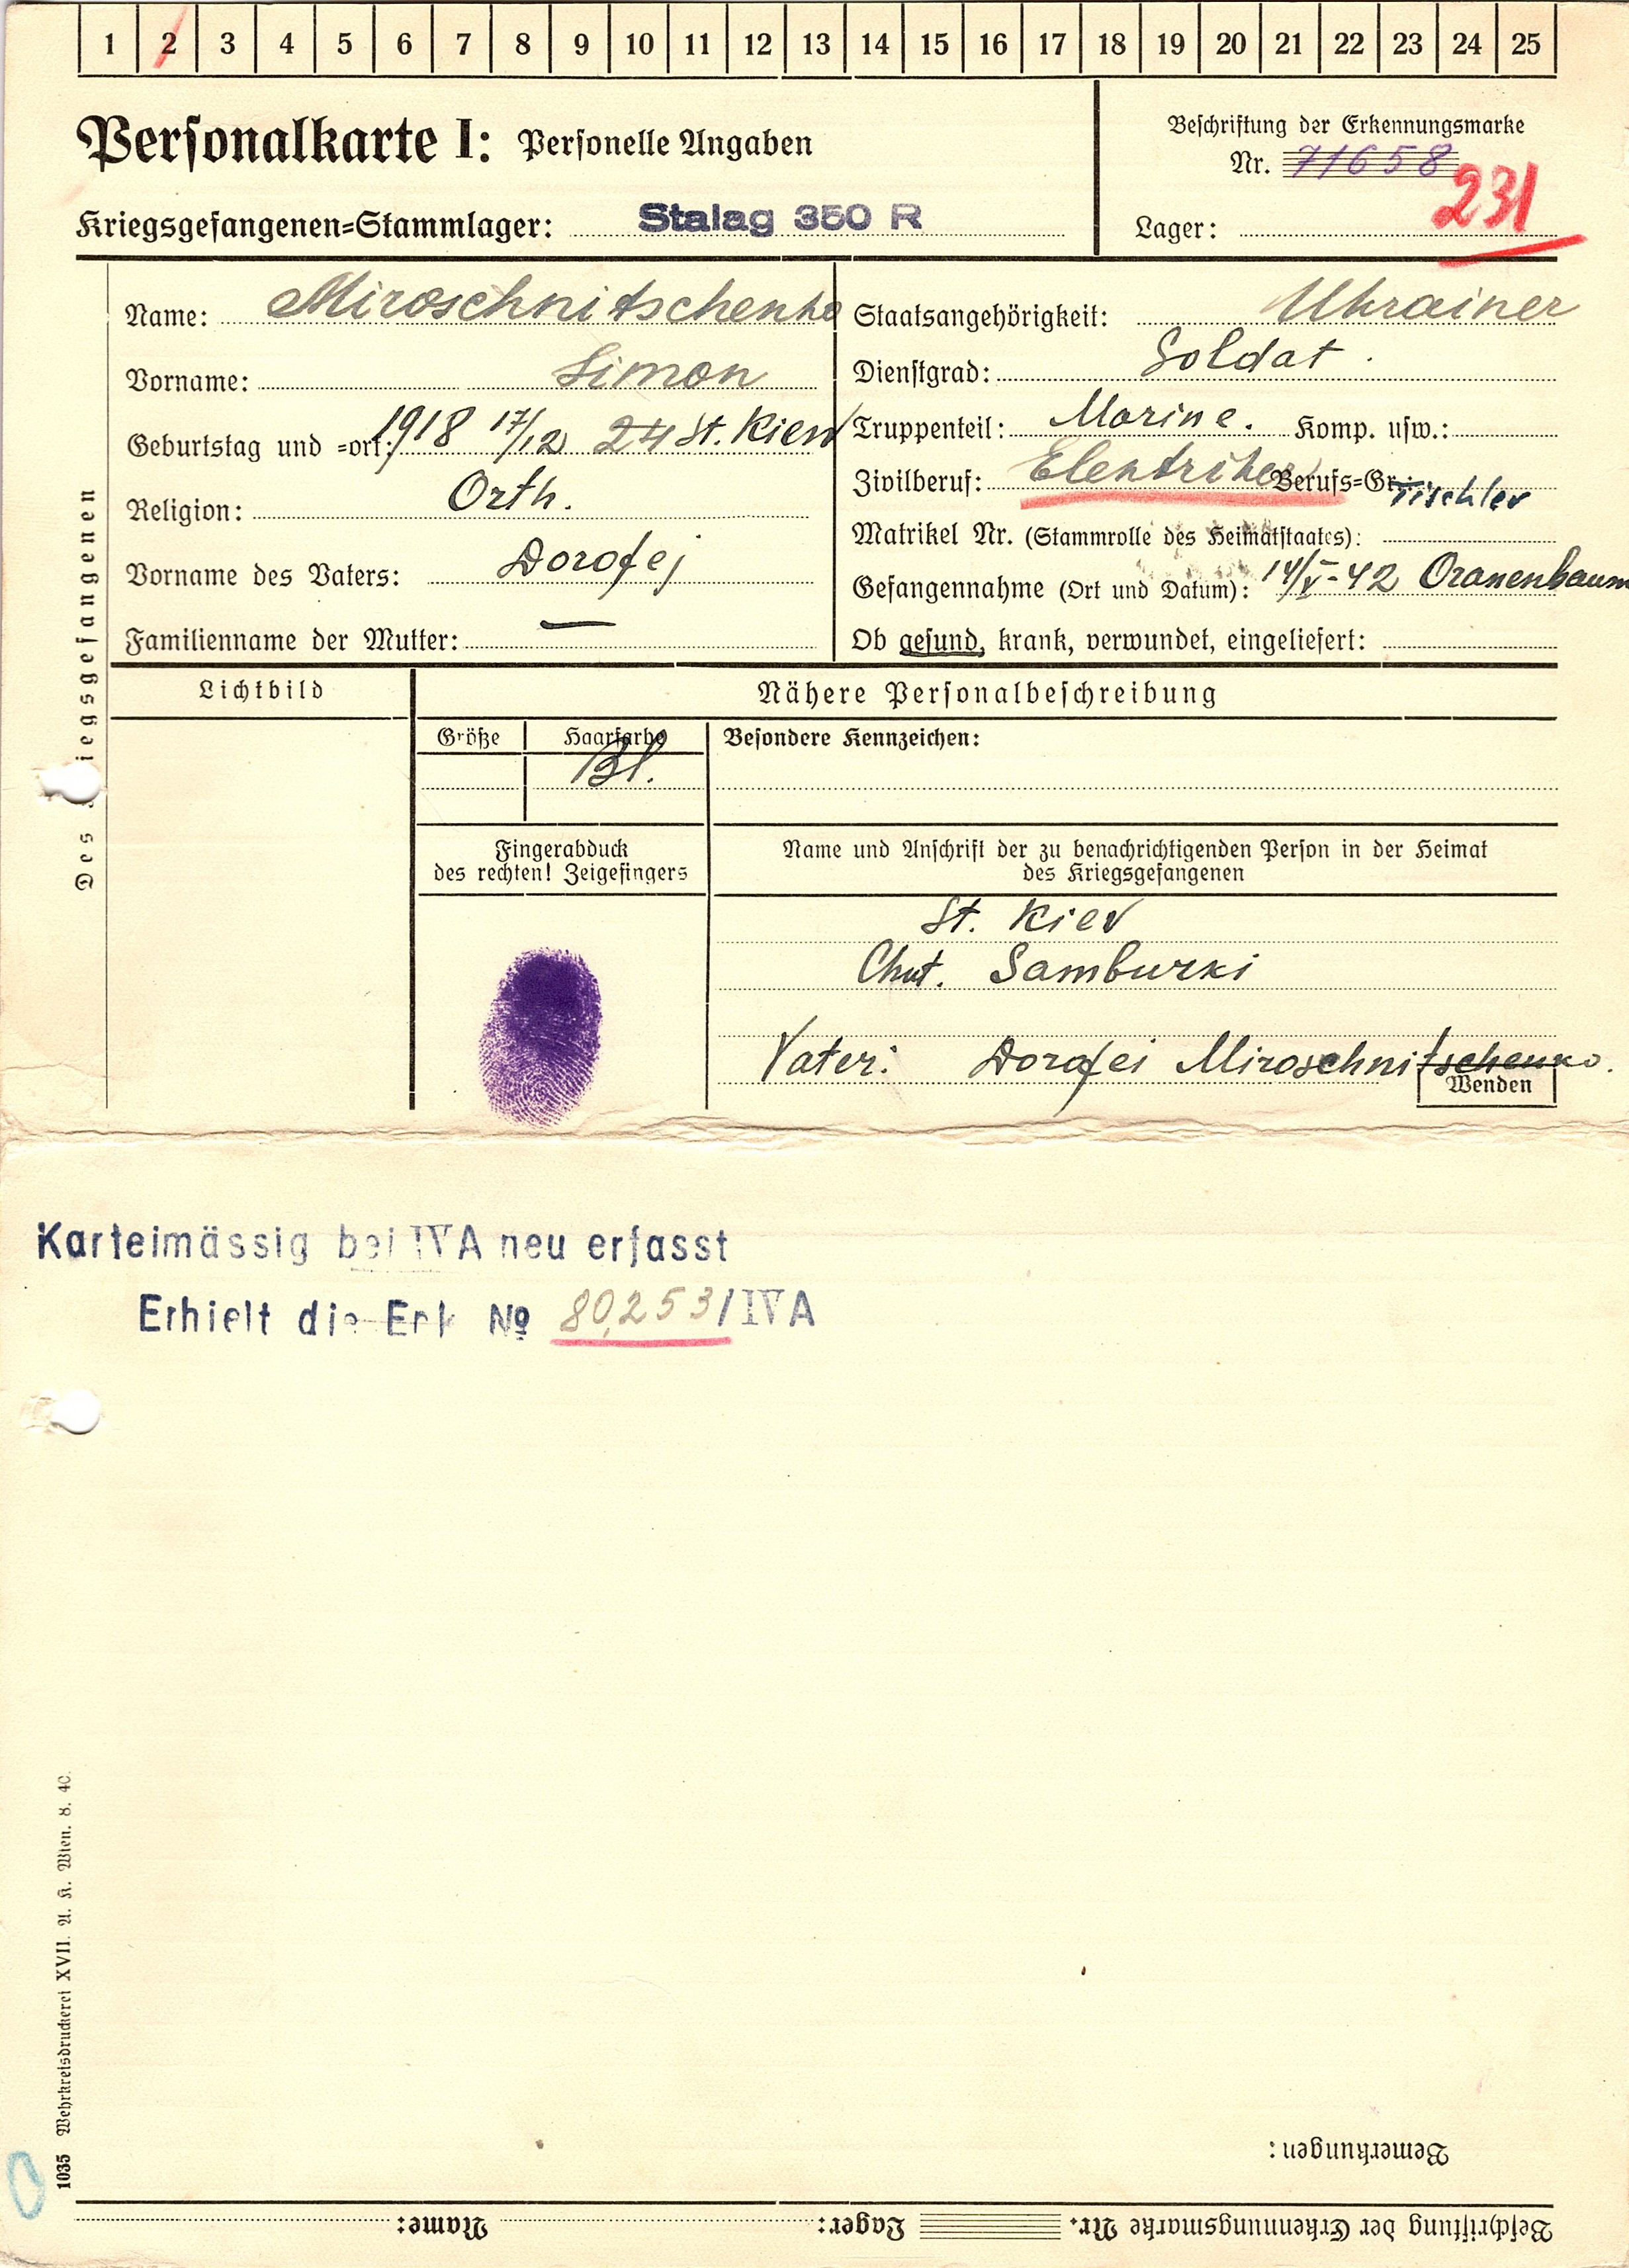 1 2 3 4 5 6 7 8 9 10 11 12 13 14 15 16 17 18 19 20 21 22 23 24 25
Personalkarte I: Personelle Angaben
Beschriftung der Erkennungsmarke
Nr. 71658
231
Kriegsgefangenen=Stammlager: Stalag 350 R
Lager:
Des Kriegsgefangenen
Name: Miroschnitschenko
Vorname: Simon
Geburtstag und =ort: 1918 17/12 24 St. Kiew
Religion: Orth.
Vorname des Vaters: Dorofej
Familienname der Mutter: —
Staatsangehörigkeit: Ukrainer
Dienstgrad: Soldat.
Truppenteil: Marine. Komp. usw.:
Zivilberuf: Elektriker Berufs=Gr. Tischler
Matrikel Nr. (Stammrolle des Heimatstaates):
Gefangennahme (Ort und Datum): 14/V-42 Oranenbaum
Ob gesund, krank, verwundet, eingeliefert:
Lichtbild
Nähere Personalbeschreibung
Größe
Haarfarbe
Bl.
Besondere Kennzeichen:
Fingerabduck
des rechten! Zeigefingers
Name und Anschrift der zu benachrichtigenden Person in der Heimat
des Kriegsgefangenen
St. Kiev
Chut. Samburki
Vater: Dorofei Miroschnitschenko.
Wenden
Karteimässig bei IVA neu erfasst
Erhielt die Erk No 80253/IVA
1035 Wehrkreisdruckerei XVII. A. K. Wien. 8. 40.
Bemerkungen:
Beschriftung der Erkennungsmarke Nr. Lager: Name: